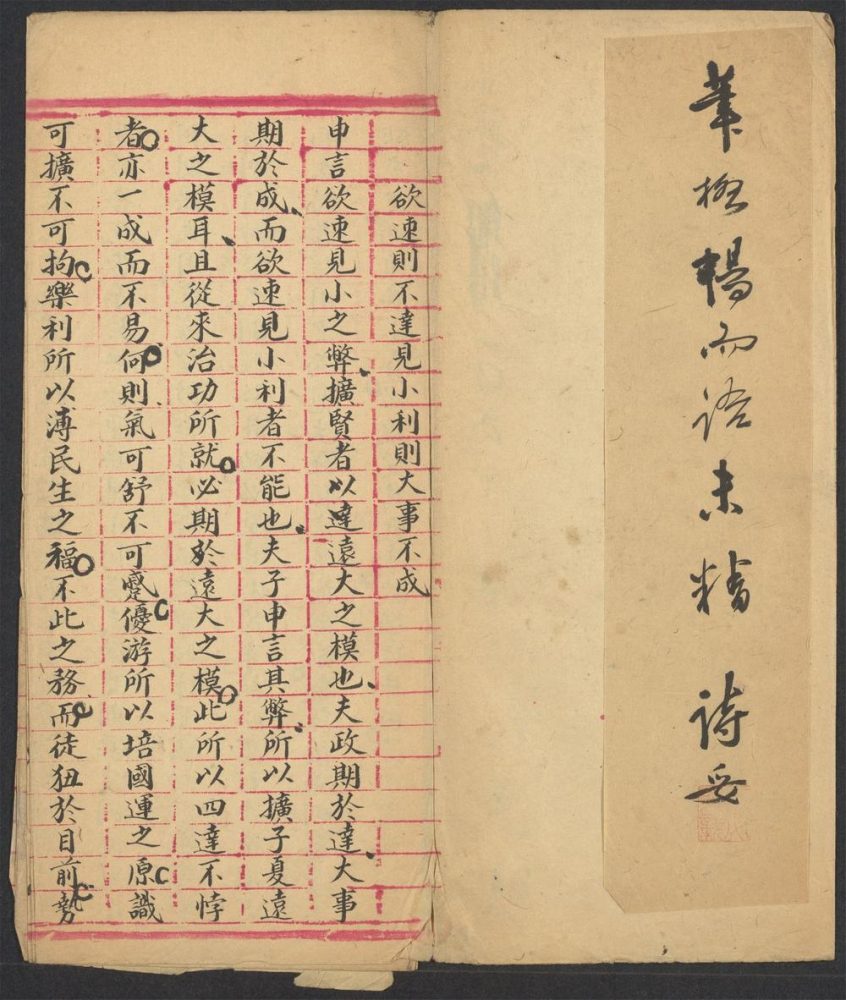 筆機暢而語未精 詩妥
欲速則不達見小利則大事不成
申言欲速見小之弊擴賢者以達遠大之模也夫政期於達大事
期於成而欲速見小利者不能也夫子申言其弊所以擴子夏遠
大之模耳且從來治功所就必期於遠大之模此所以四達不悖
者亦一成而不易何則氣可舒不可蹙優游所以培國運之原識
可擴不可拘樂利所以溥民生之福不此之務而徒狃於目前勢